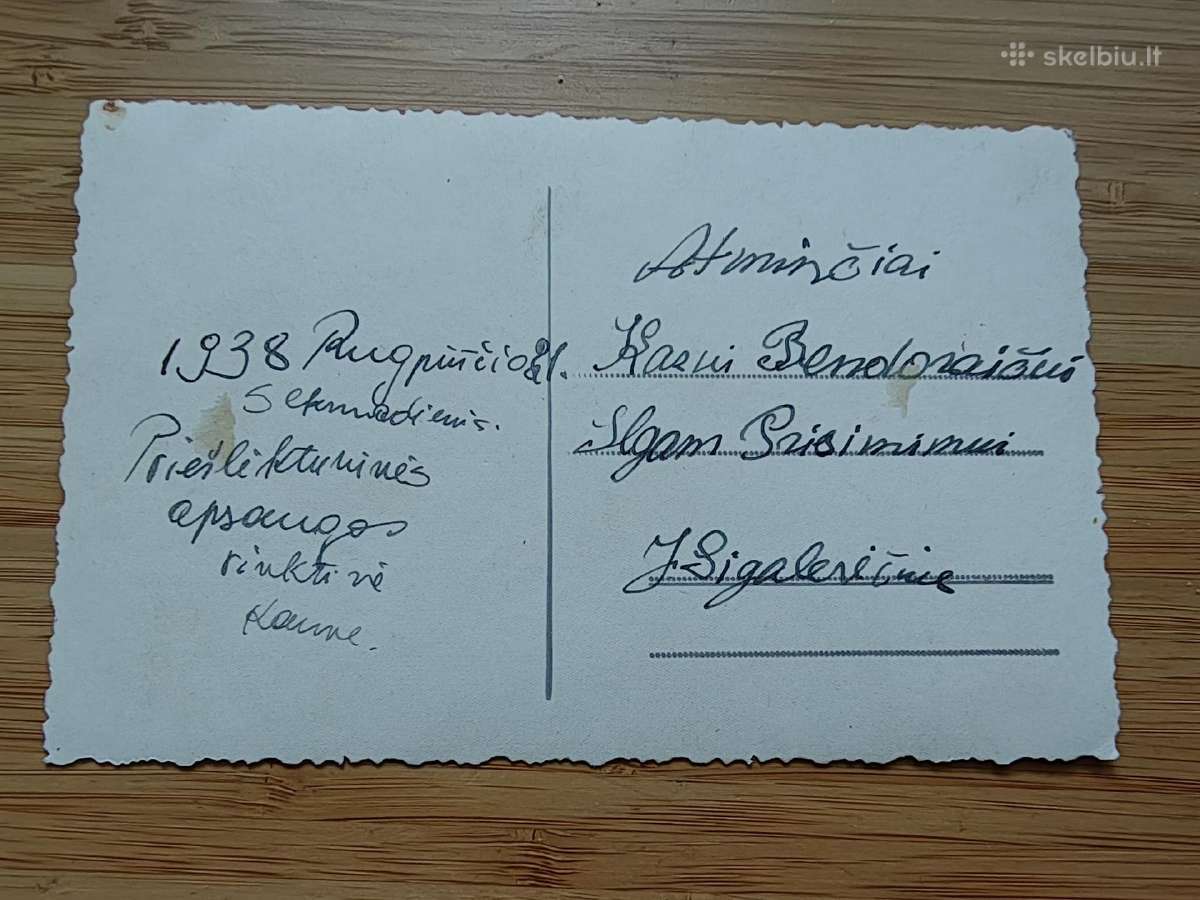 skelbiu.lt
1938 Rugpiučio 21.
Sekmadienis.
Priešlėktuvinės
apsaugos
rinktinė
Kaune.
Atminčiai
Bendoraičiui
Ilgam Prisiminui